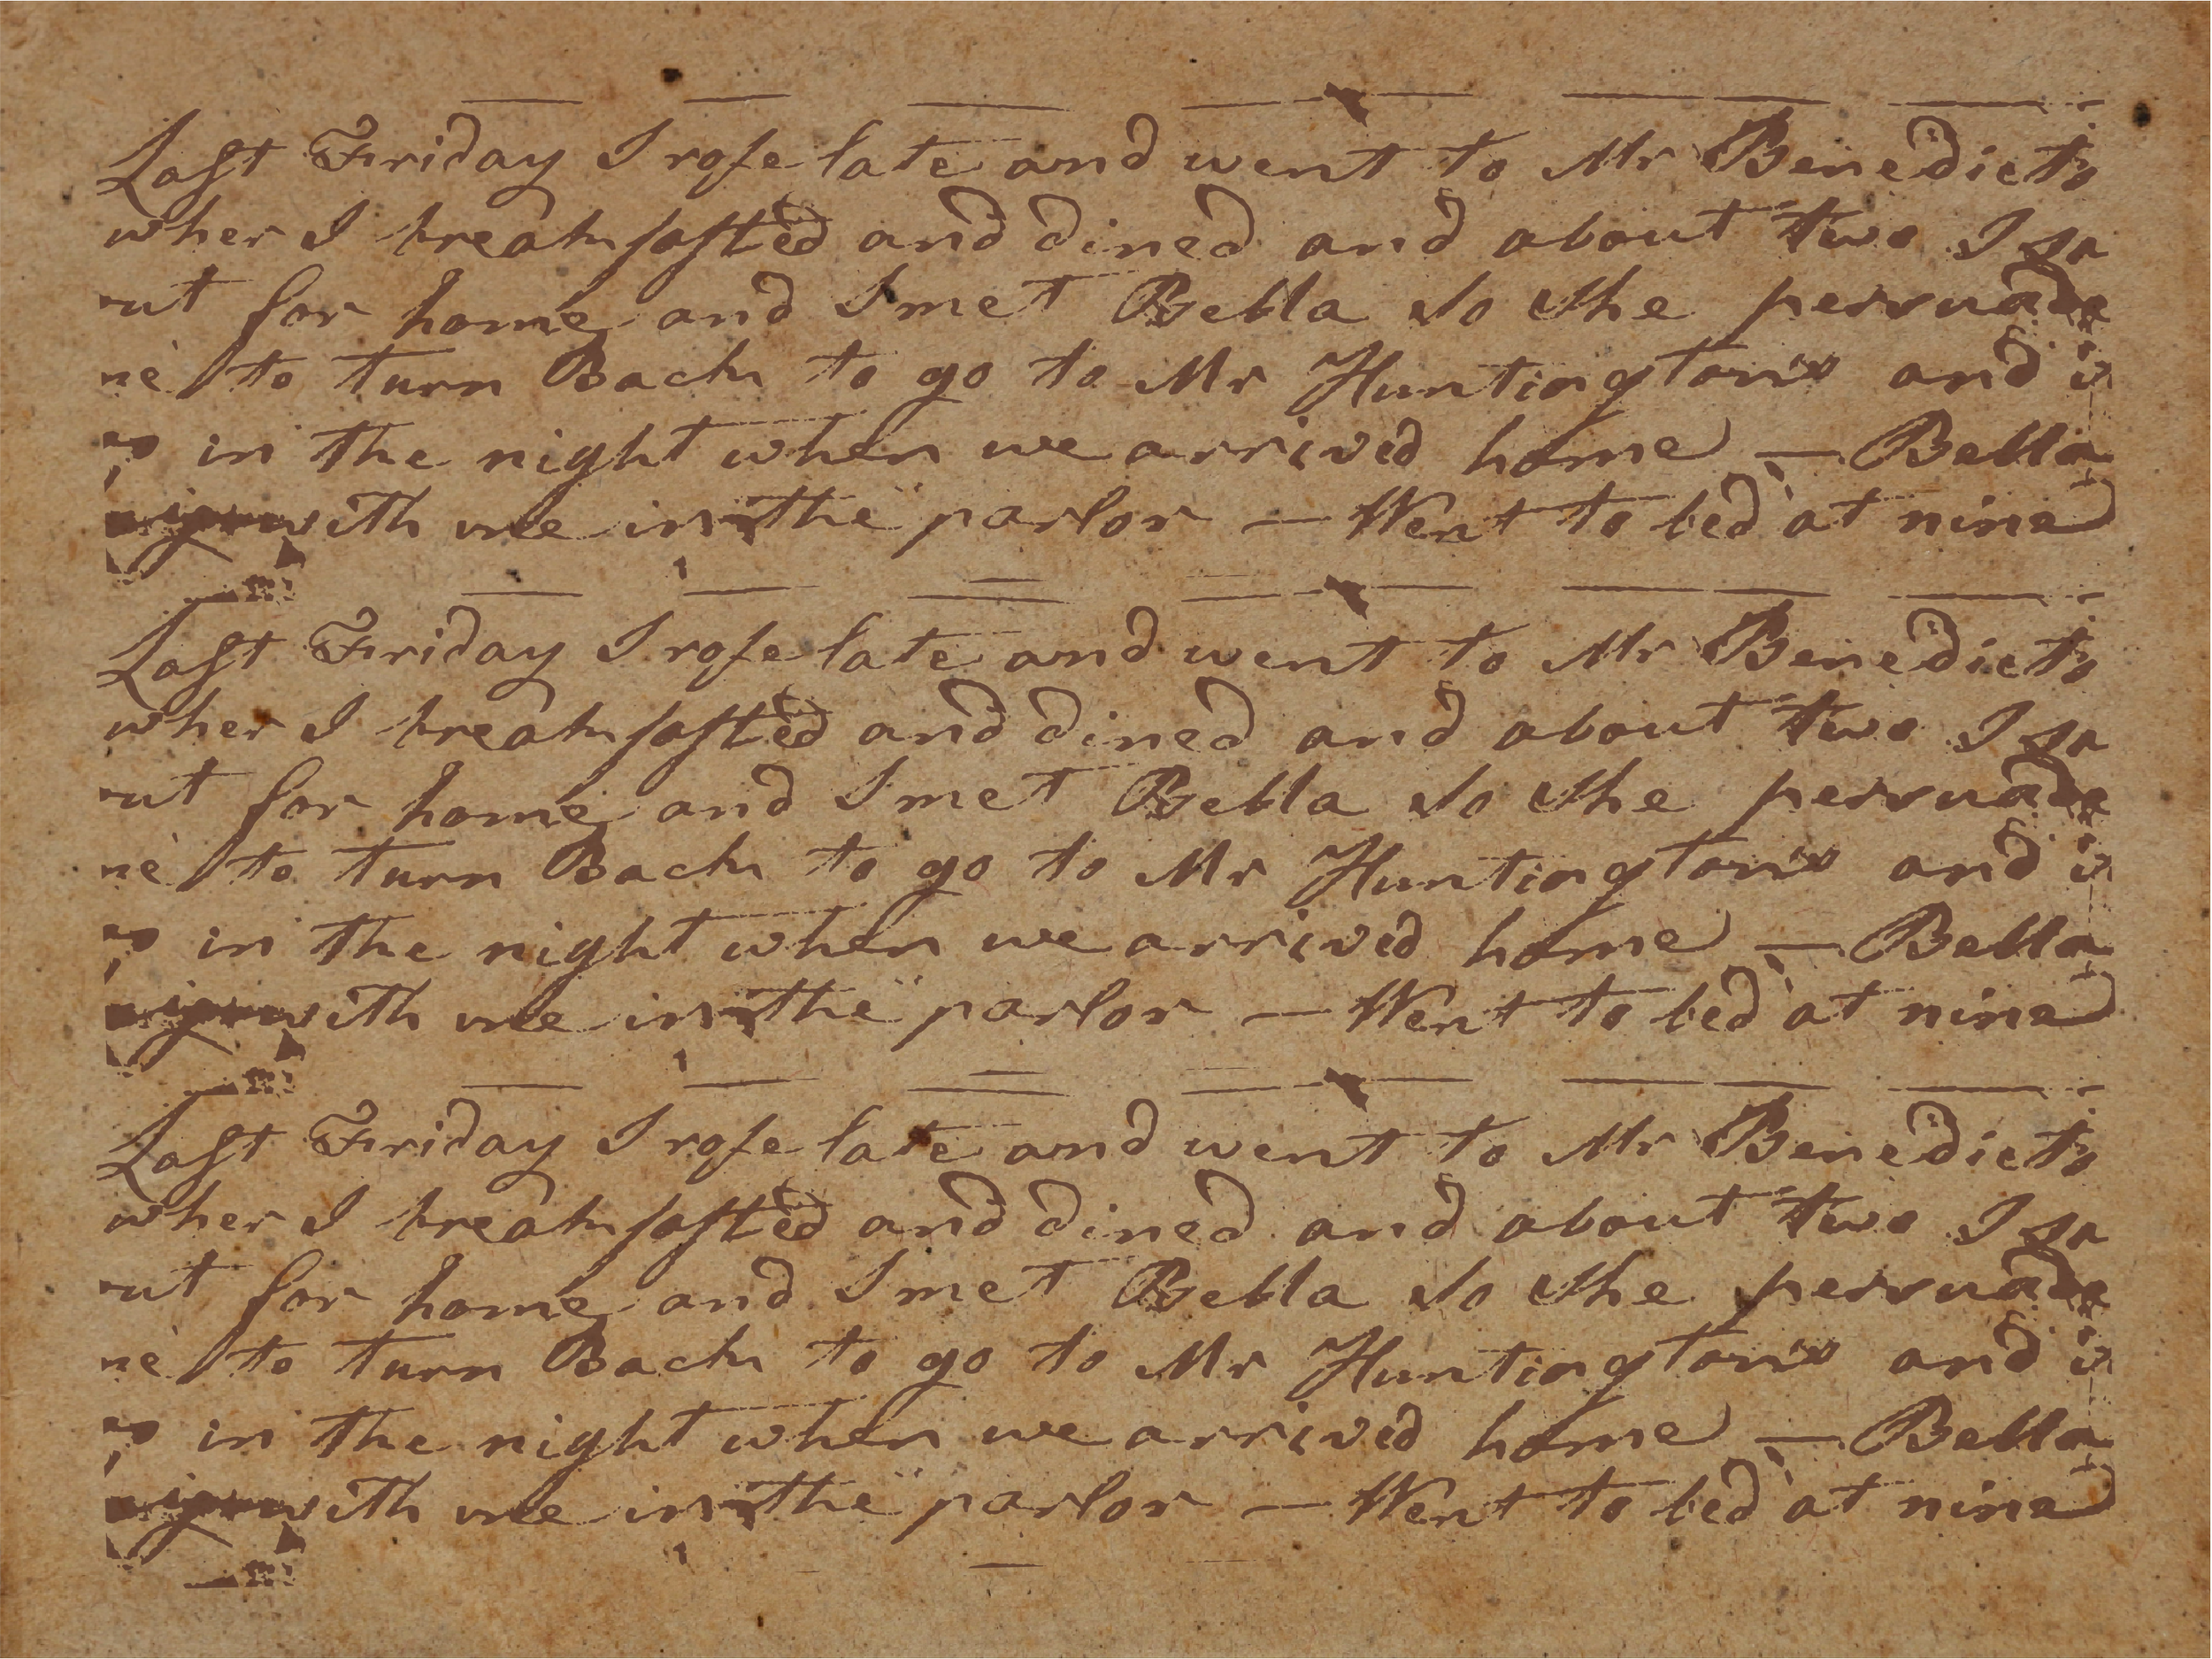 Last Friday I rose late and went to Mr Benedicts
wher I breakfasted and dined and about two I
for home and I met Bella so she
to turn Back to go to Mr Huntington's and
in the night when we arrived home — Bella
with me in the parlor — Went to bed at nine
Last Friday I rose late and went to Mr Benedicts
wher I breakfasted and dined and about two I
for home and I met Bella so she
to turn Back to go to Mr Huntington's and
in the night when we arrived home — Bella
with me in the parlor — Went to bed at nine
Last Friday I rose late and went to Mr Benedicts
wher I breakfasted and dined and about two I
for home and I met Bella so she
to turn Back to go to Mr Huntington's and
in the night when we arrived home — Bella
with me in the parlor — Went to bed at nine